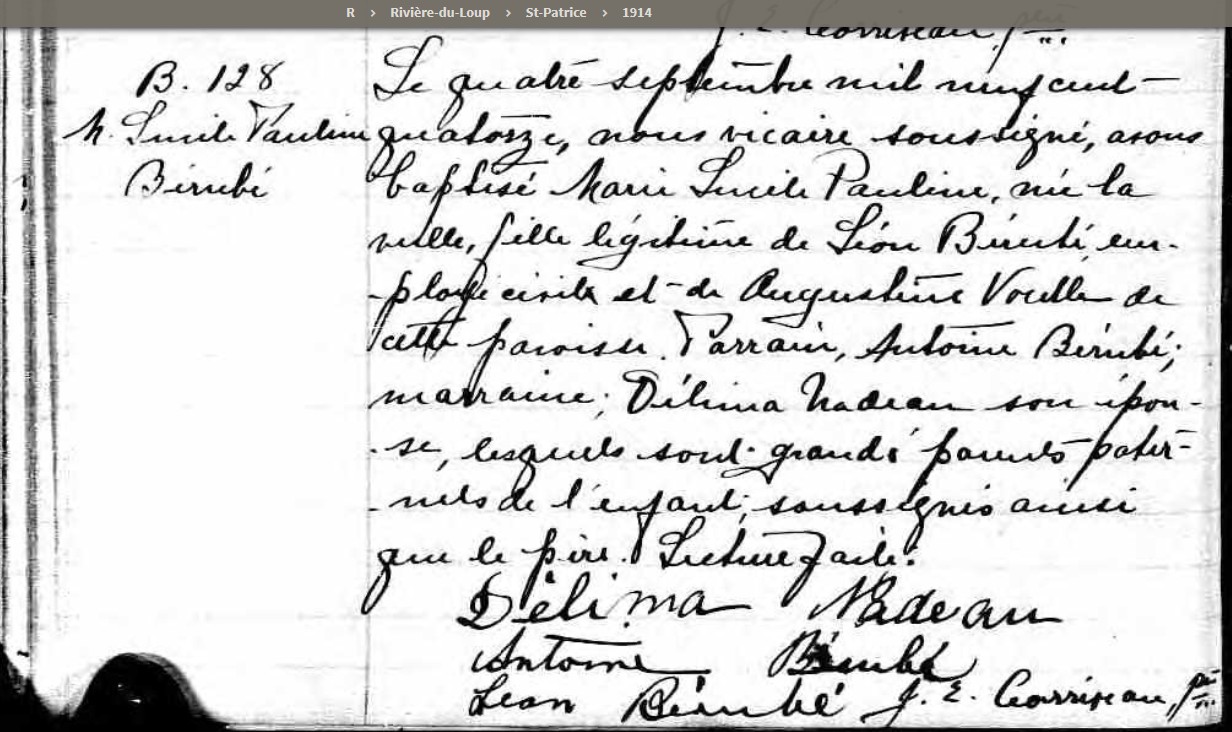 R › Rivière-du-Loup › St-Patrice › 1914
J. E. Corriveau, ptre
B. 128
M. Lucile Pauline
Bérubé
Le quatre septembre mil neuf cent
quatorze, nous vicaire soussigné, avons
baptisé Marie Lucile Pauline, née la
veille, fille légitime de Léon Bérubé, em-
-ployé civil et de Augustine Voelle de
cette paroisse. Parrain, Antoine Bérubé;
marraine; Délima Nadeau son épou-
-se, lesquels sont grands parents pater-
-nels de l'enfant; soussignés ainsi
que le père. Lecture faite.
Délima Nadeau
Antoine Bérubé
Léon Bérubé J. E. Corriveau, ptre